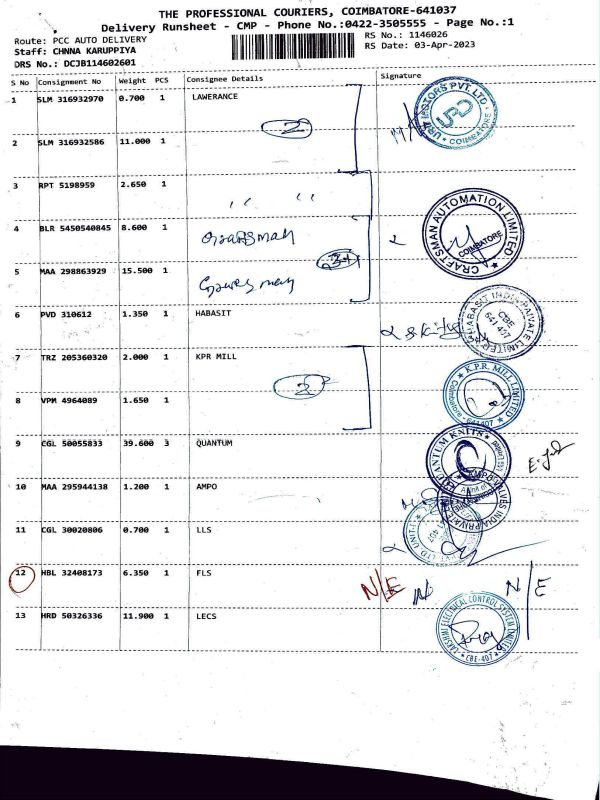 THE PROFESSIONAL COURIERS, COIMBATORE-641037
Delivery Runsheet - CMP - Phone No.:0422-3505555 - Page No.:1
Route: PCC AUTO DELIVERY
RS No.: 1146026
Staff: CHNNA KARUPPIYA
RS Date: 03-Apr-2023
DRS No.: DCJB114602601
S No Consignment No Weight PCS Consignee Details Signature
1 SLM 316932970 0.700 1 LAWERANCE
2
2 SLM 316932586 11.000 1
3 RPT 5198959 2.650 1
4 BLR 5450540845 8.600 1
5 MAA 298863929 15.500 1
CRAFTSMAN AUTOMATION LIMITED
COIMBATORE
6 PVD 310612 1.350 1 HABASIT
HABASIT INDIA PRIVATE LIMITED
CBE
641 407
7 TRZ 205360320 2.000 1 KPR MILL
2
8 VPM 4964089 1.650 1
K.P.R. MILL LIMITED
Coimbatore - 641407
9 CGL 50055833 39.600 3 QUANTUM
QUANTUM KNITS
10 MAA 295944138 1.200 1 AMPO
11 CGL 30020806 0.700 1 LLS
12 HBL 32408173 6.350 1 FLS N/E N/E
13 HRD 50326336 11.900 1 LECS
LAKSHMI ELECTRICAL CONTROL SYSTEMS LIMITED
CBE-407